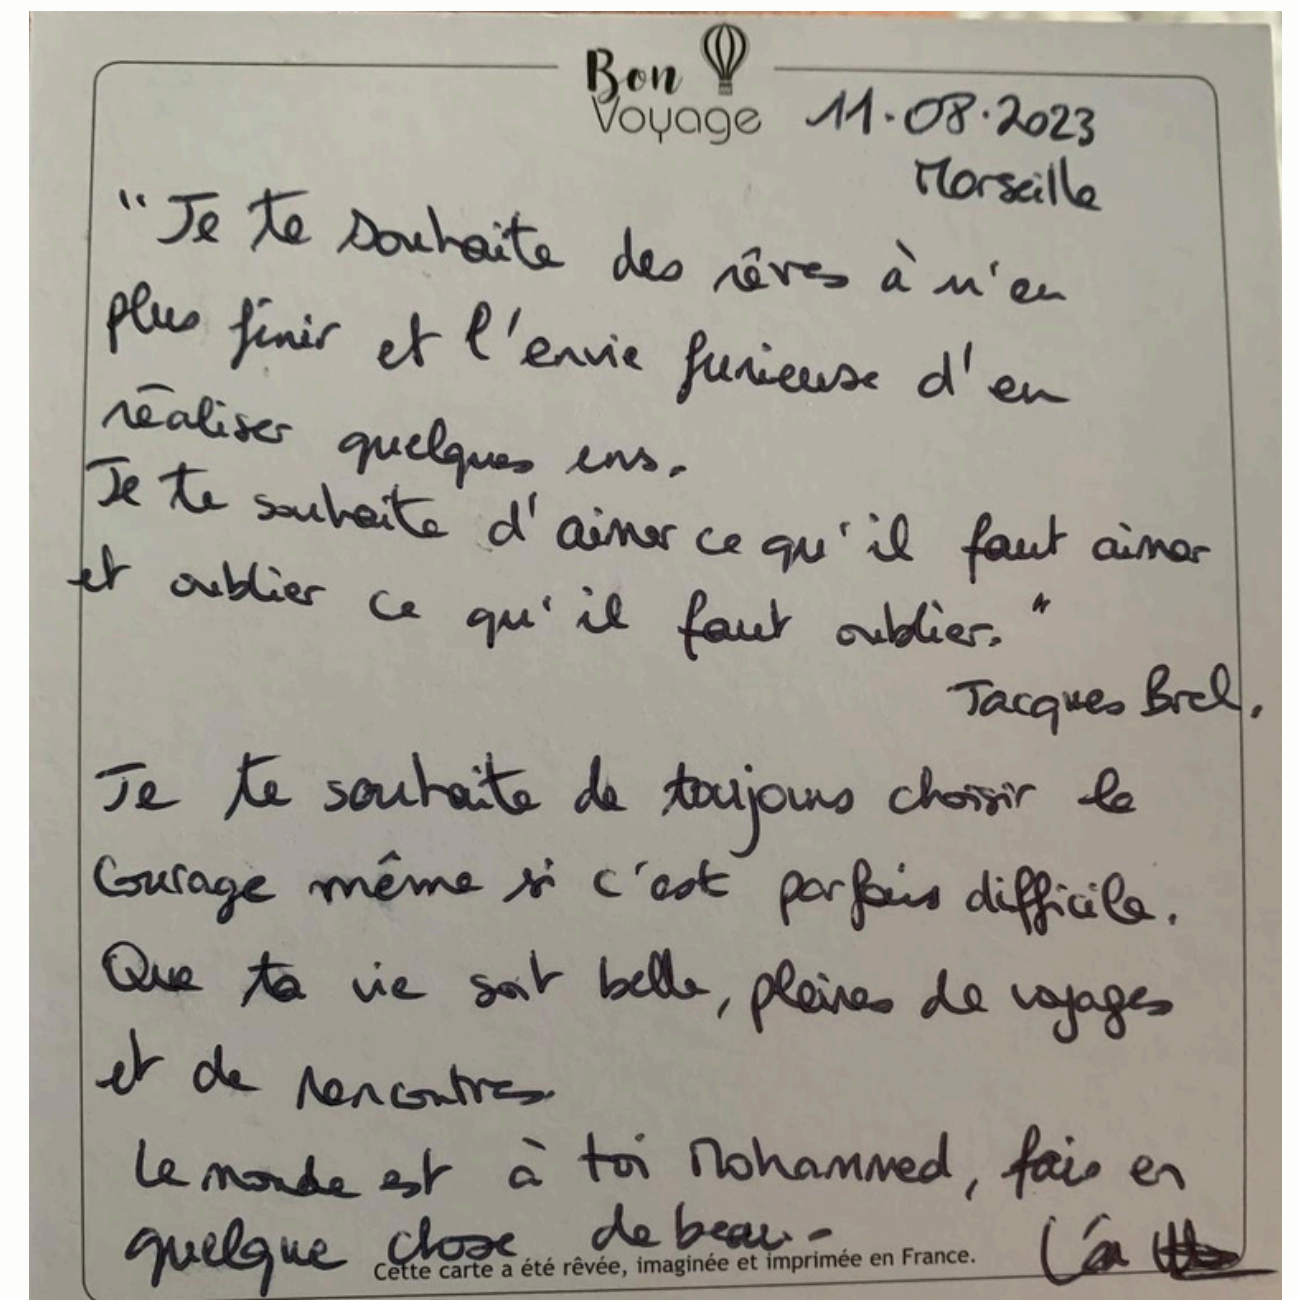 Bon
Voyage
11.08.2023
Marseille
"Je te souhaite des rêves à n'en
plus finir et l'envie furieuse d'en
réaliser quelques uns.
Je te souhaite d'aimer ce qu'il faut aimer
et oublier ce qu'il faut oublier."
Jacques Brel.
Je te souhaite de toujours choisir le
courage même si c'est parfois difficile.
Que ta vie soit belle, pleines de voyages
et de rencontres.
Le monde est à toi Mohammed, fais en
quelque chose de beau.
Cette carte a été rêvée, imaginée et imprimée en France.